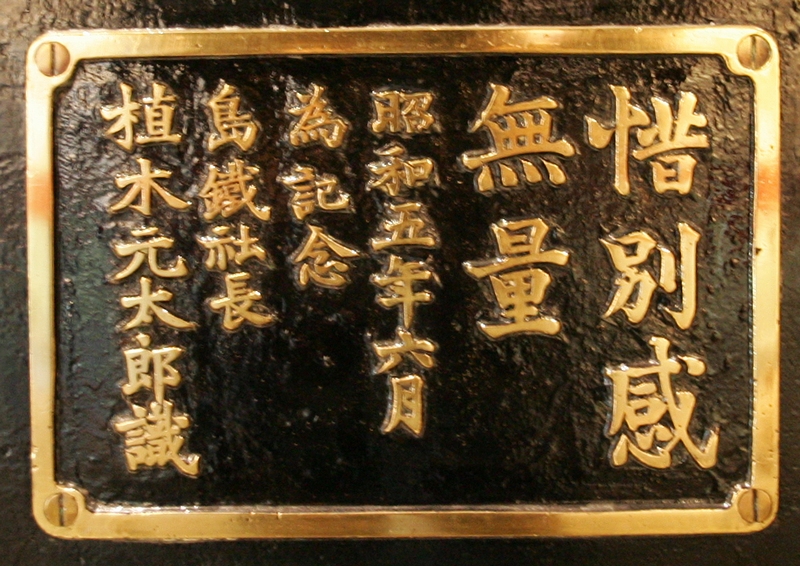 惜別感
無量
昭和五年六月
為記念
島鐵社長
植木元太郎識